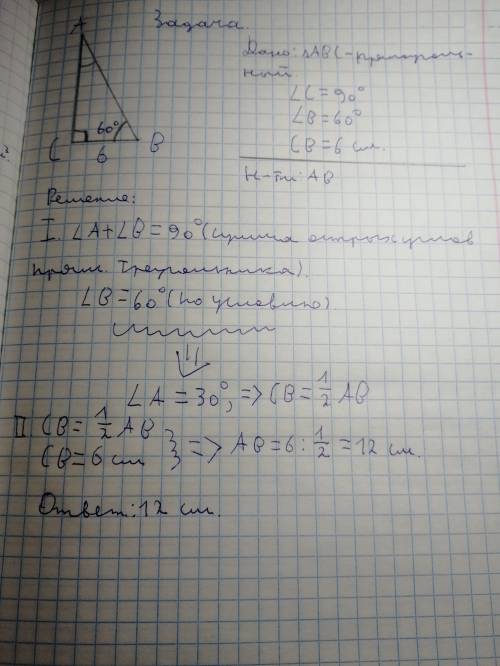 Задача.
A
60°
C 6 B
Дано: ΔABC - прямоуголь-
ный.
∠C = 90°
∠B = 60°
CB = 6 см.
Н-ти: AB
Решение:
I. ∠A + ∠B = 90° (сумма острых углов
прям. треугольника).
∠B = 60° (по условию)
⇓
∠A = 30°, => CB = 1/2 AB
II CB = 1/2 AB
CB = 6 см } => AB = 6 : 1/2 = 12 см.
Ответ: 12 см.